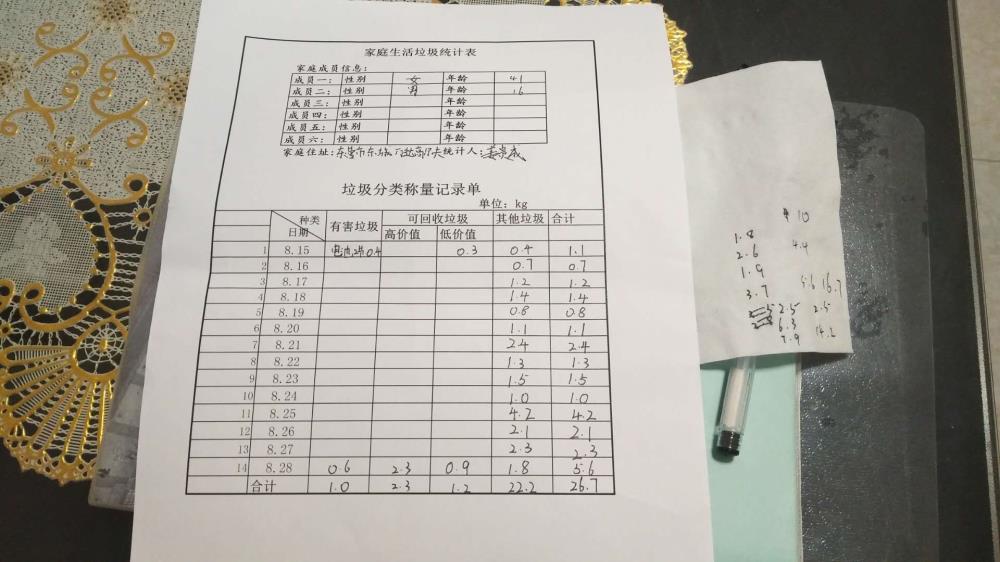 家庭生活垃圾统计表
家庭成员信息：
成员一： 性别 女 年龄 41
成员二： 性别 男 年龄 16
成员三： 性别 年龄
成员四： 性别 年龄
成员五： 性别 年龄
成员六： 性别 年龄
家庭住址：东营市东城 统计人：
垃圾分类称量记录单
单位：kg
种类 日期 有害垃圾 可回收垃圾 其他垃圾 合计
高价值 低价值
1 8.15 电池 0.4 0.3 0.4 1.1
2 8.16 0.7 0.7
3 8.17 1.2 1.2
4 8.18 1.4 1.4
5 8.19 0.8 0.8
6 8.20 1.1 1.1
7 8.21 2.4 2.4
8 8.22 1.3 1.3
9 8.23 1.5 1.5
10 8.24 1.0 1.0
11 8.25 4.2 4.2
12 8.26 2.1 2.1
13 8.27 2.3 2.3
14 8.28 0.6 2.3 0.9 1.8 5.6
合计 1.0 2.3 1.2 22.2 26.7
10
1.8
2.6 4.4
1.9
3.7 5.6 16.7
2.5 2.5
6.3
7.9 14.2